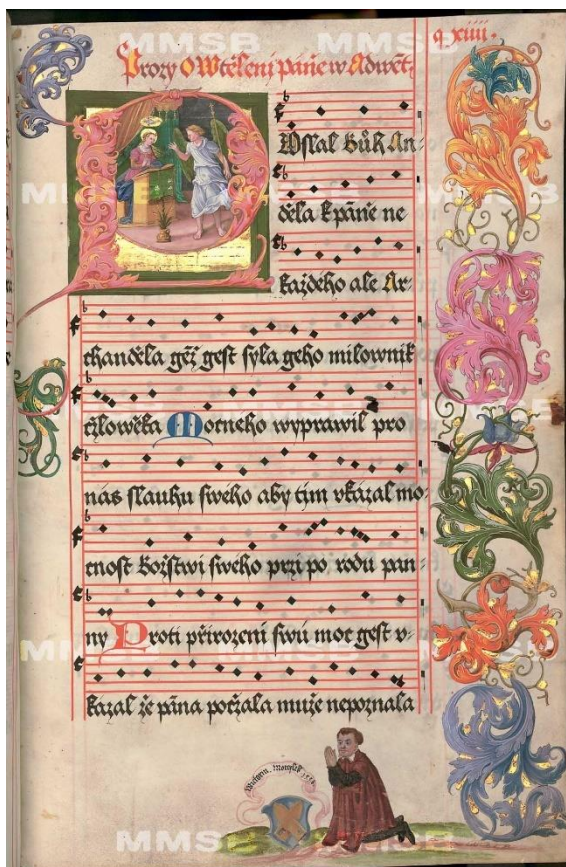 q xiiii.
Prozy o Wtěleni panie w Adwět:
POslal Bůh An=
děla k panie ne
každeho ale Ar=
chanděla gěž gest syla geho milownik
człowěka Mocneho wyprawil pro
nás slauhu sweho aby tim vkázal mo=
cnost Božstwi sweho przi po rodu pan=
ny Proti přirozeni swú moc gest v=
kazal že pána počzala muže nepoznala
MMSB